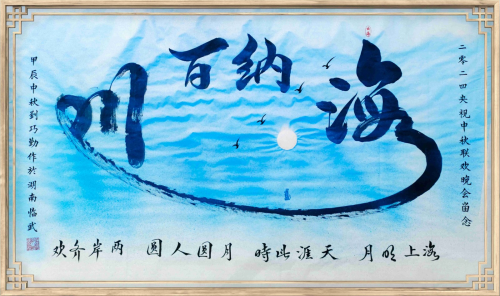 海纳百川
二零二四央视中秋联欢晚会留念
海上明月 天涯此時 月圆人圆 两岸齐欢
甲辰中秋刘巧勤作於湖南临武